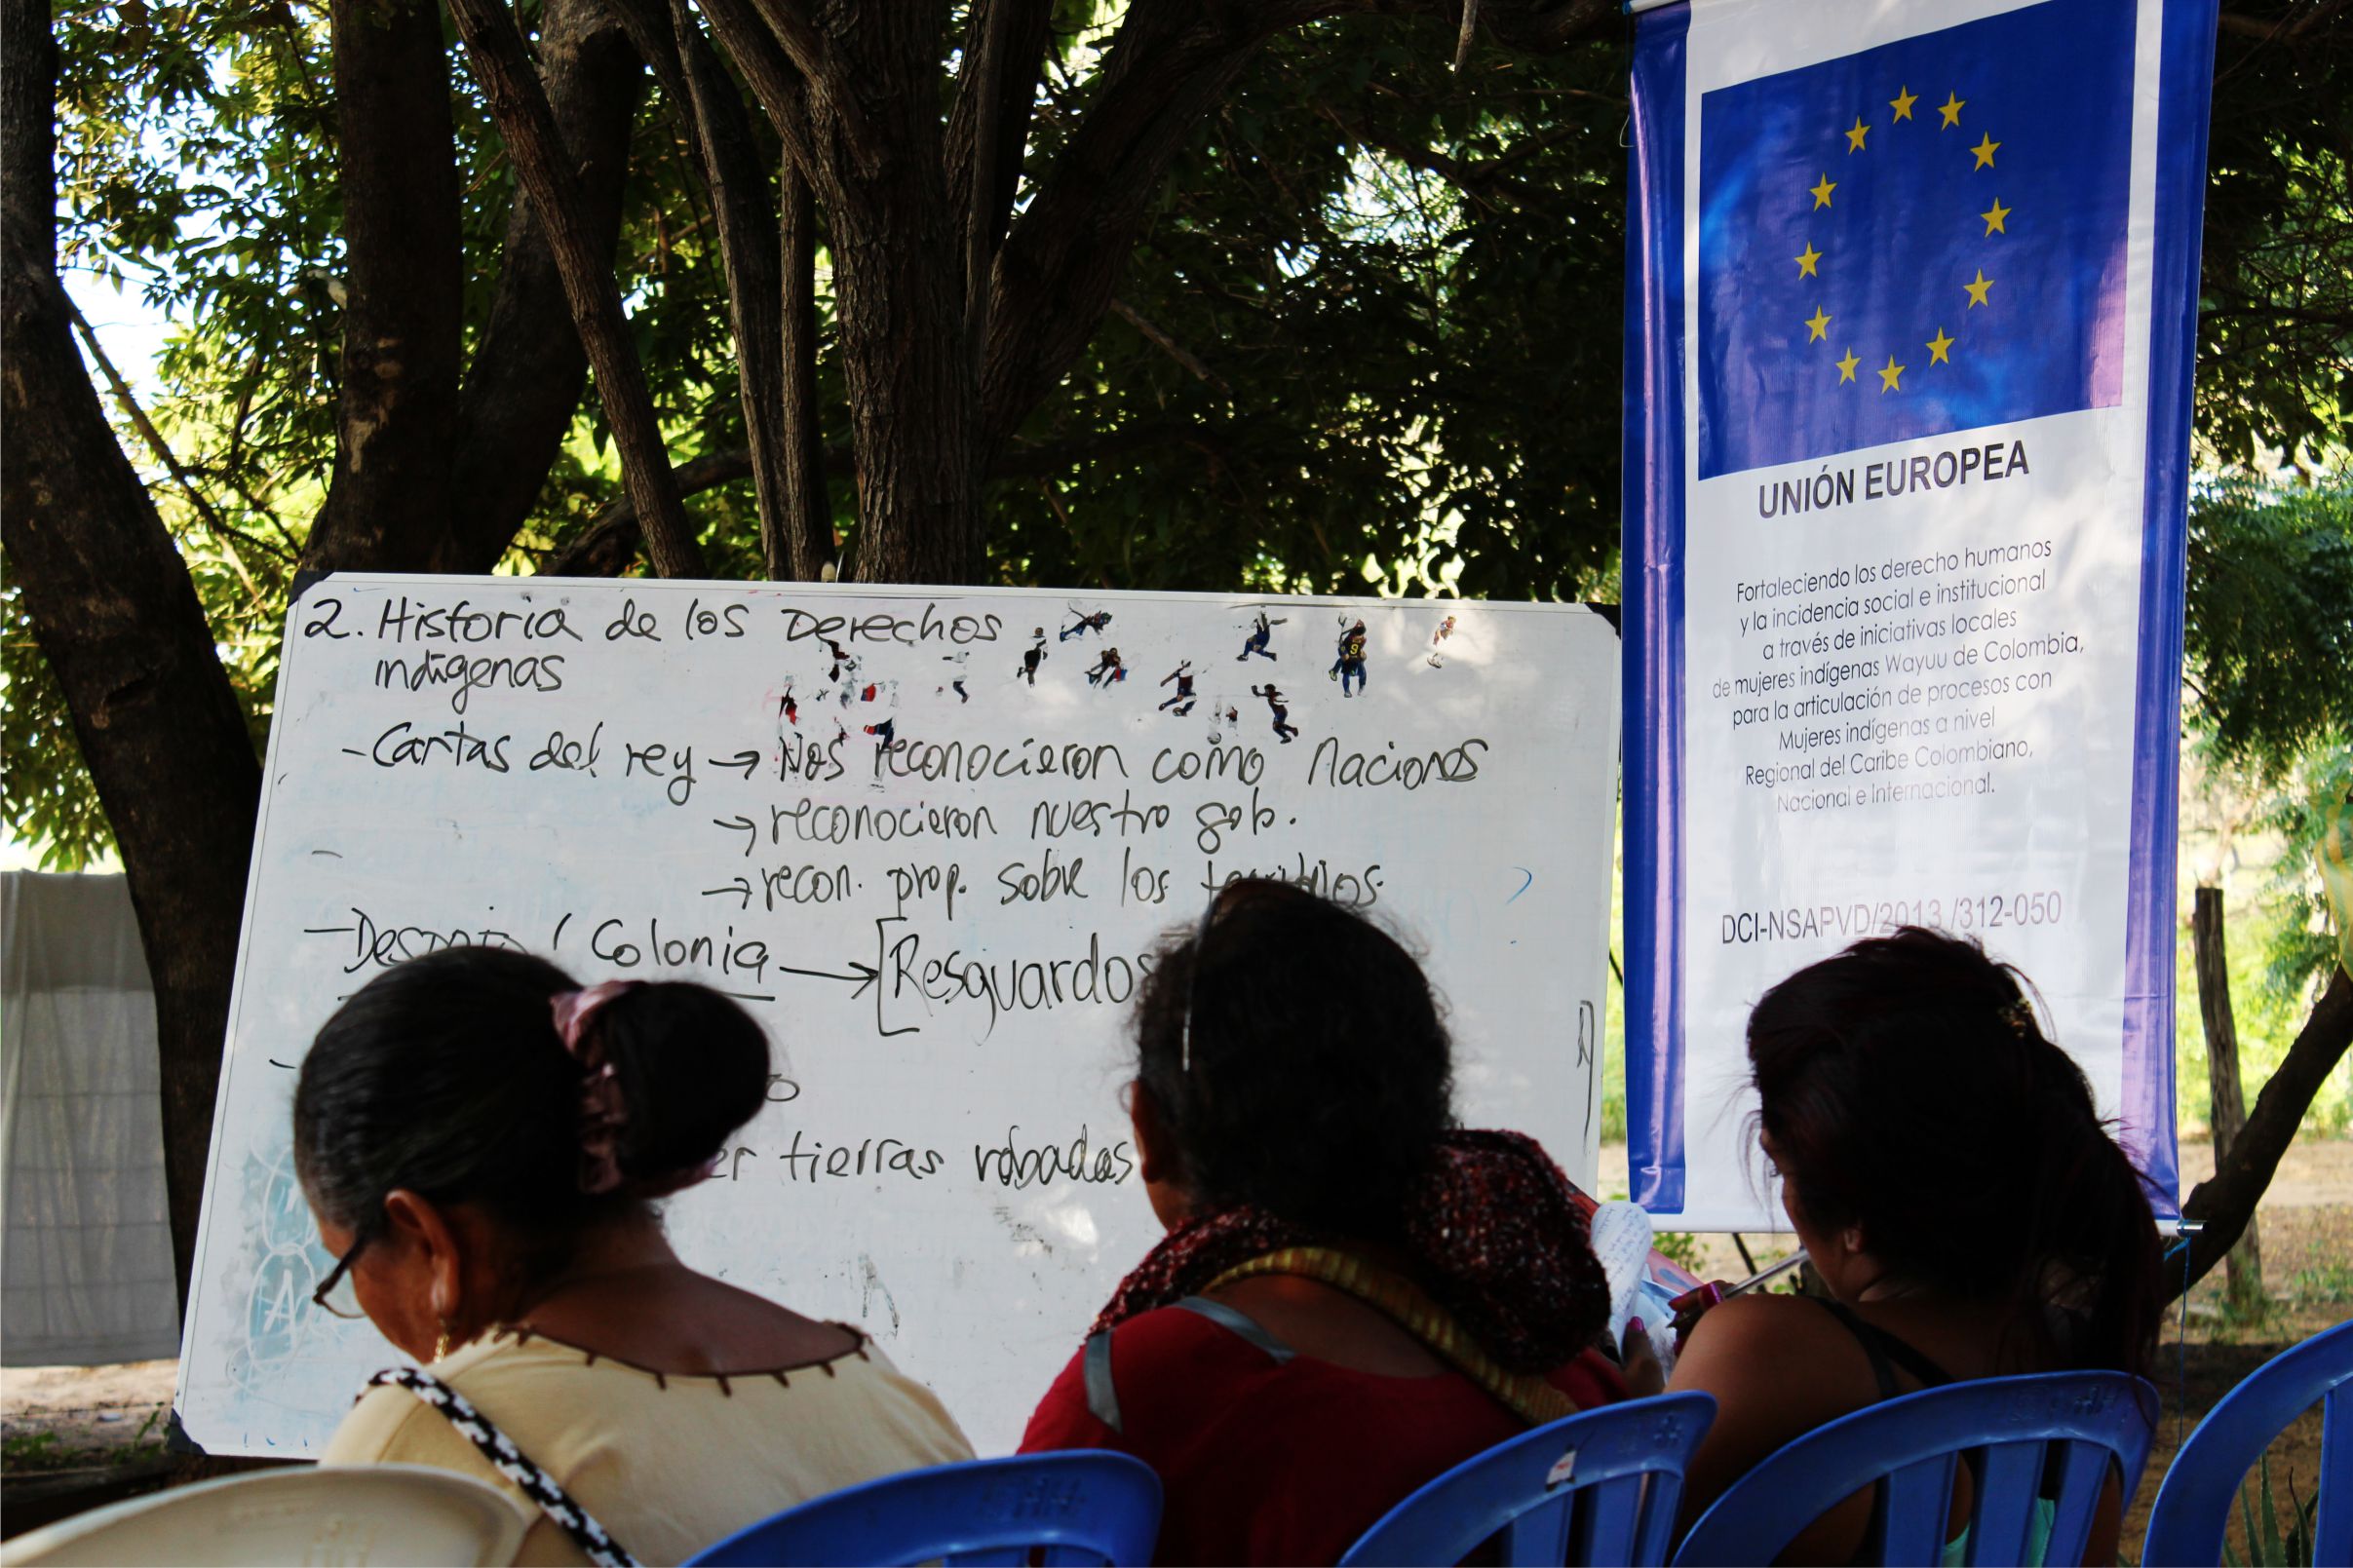 2. Historia de los Derechos
indígenas
- Cartas del rey → Nos reconocieron como naciones
→ reconocieron nuestro gob.
→ recon. prop. sobre los territorios.
/ Colonia → [Resguardos
tierras robadas
A
UNIÓN EUROPEA
Fortaleciendo los derecho humanos
y la incidencia social e institucional
a través de iniciativas locales
de mujeres indígenas Wayuu de Colombia,
para la articulación de procesos con
Mujeres indígenas a nivel
Regional del Caribe Colombiano,
Nacional e Internacional.
DCI-NSAPVD/2013 /312-050